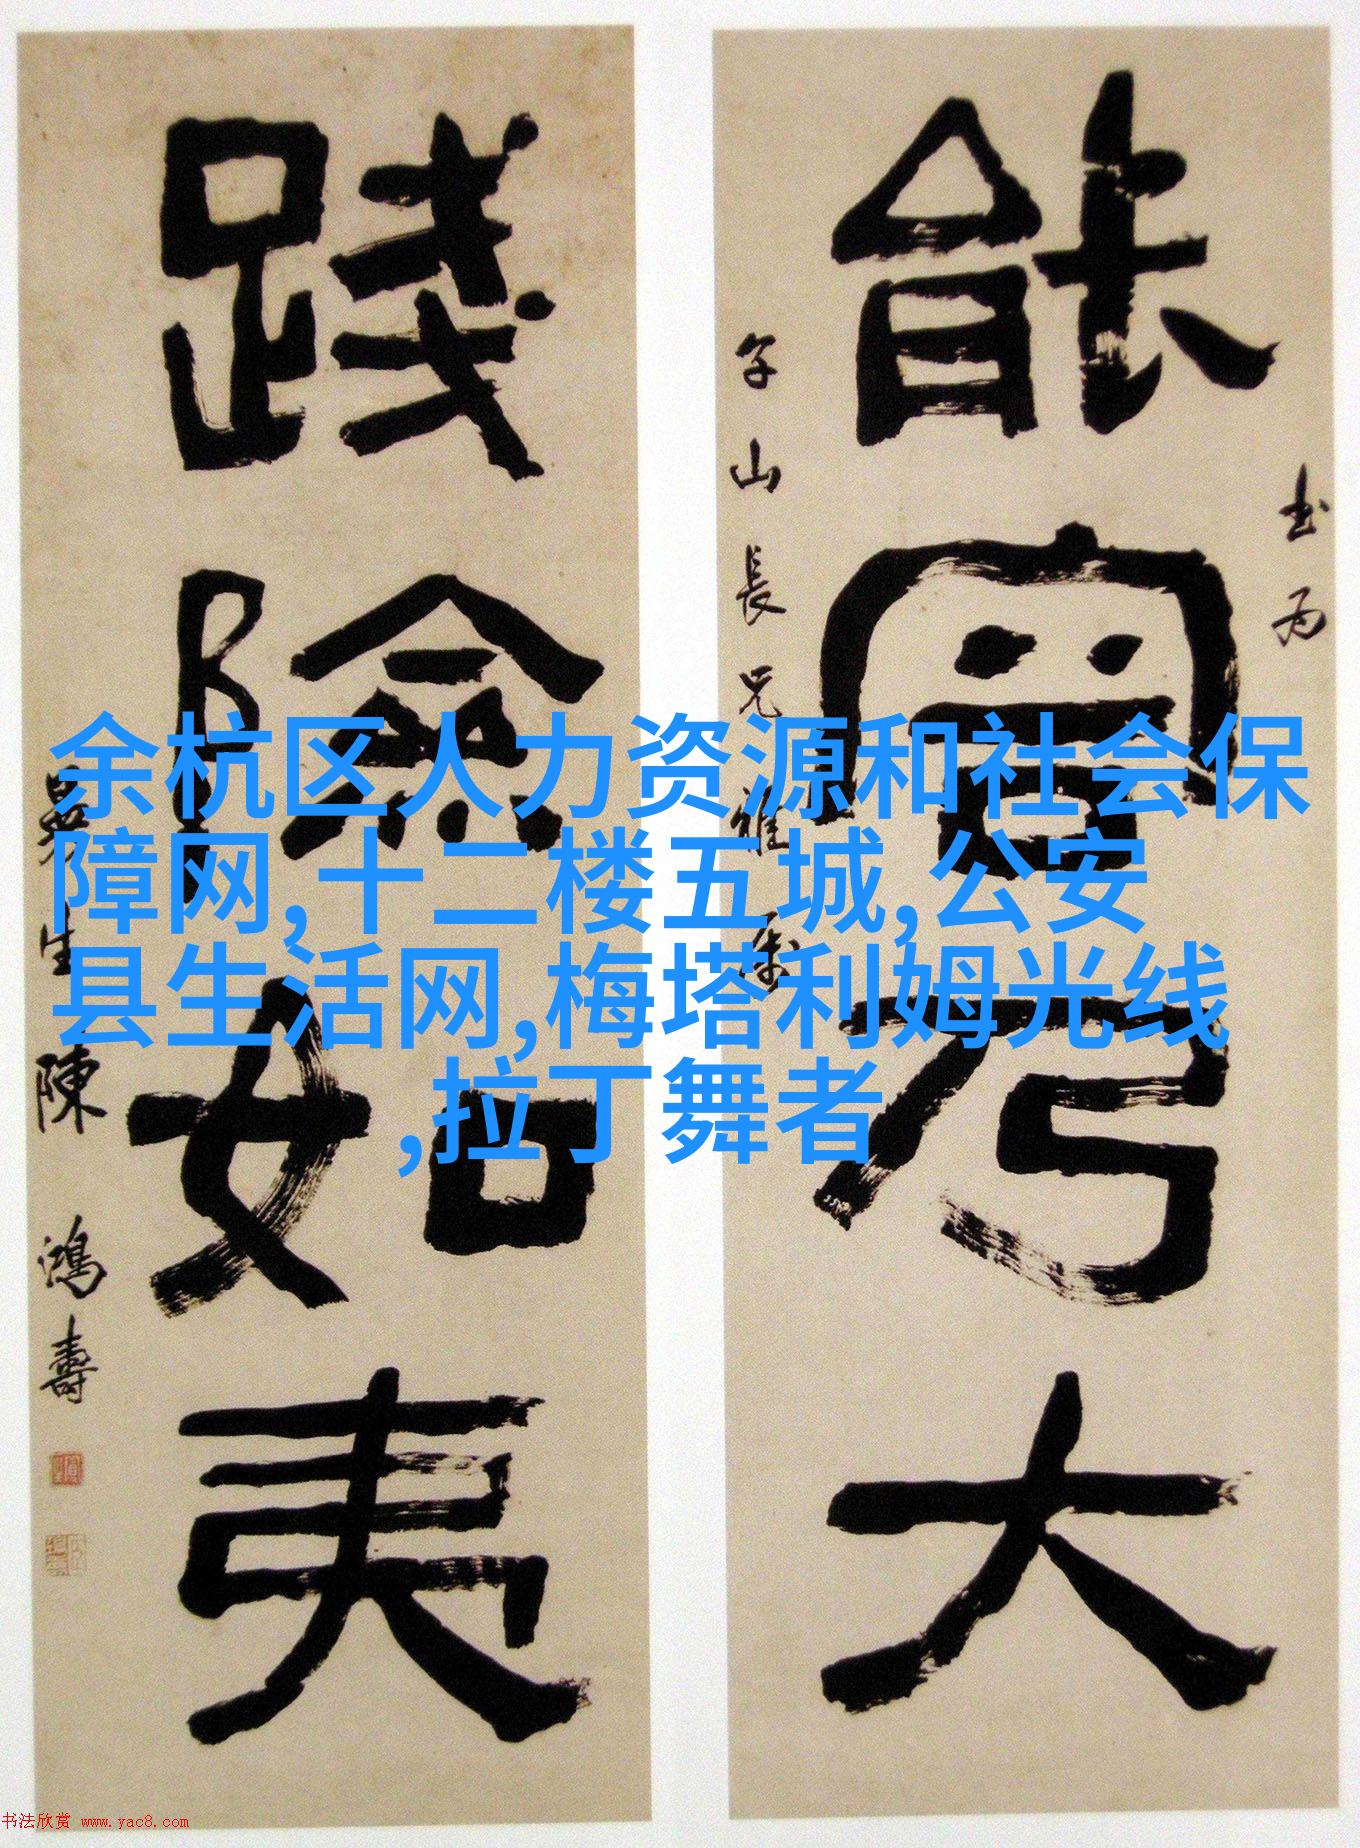 能容乃大
书为
子山長兄雅属
踐險如夷
曼生陳鴻壽
余杭区人力资源和社会保
障网,十二楼五城,公安
县生活网,梅塔利姆光线
,拉丁舞者
书法欣赏 www.yac8.com